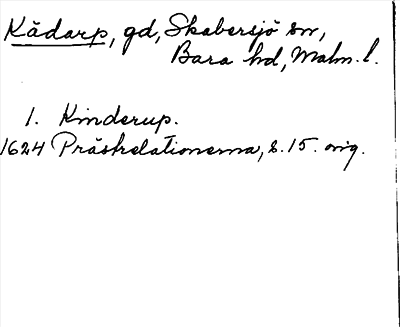 Kådarp, gd, Skabersjö sn,
Bara hd, Malm. l.
1. Kinderup.
1624 Prästrelationerna, s. 15. orig.